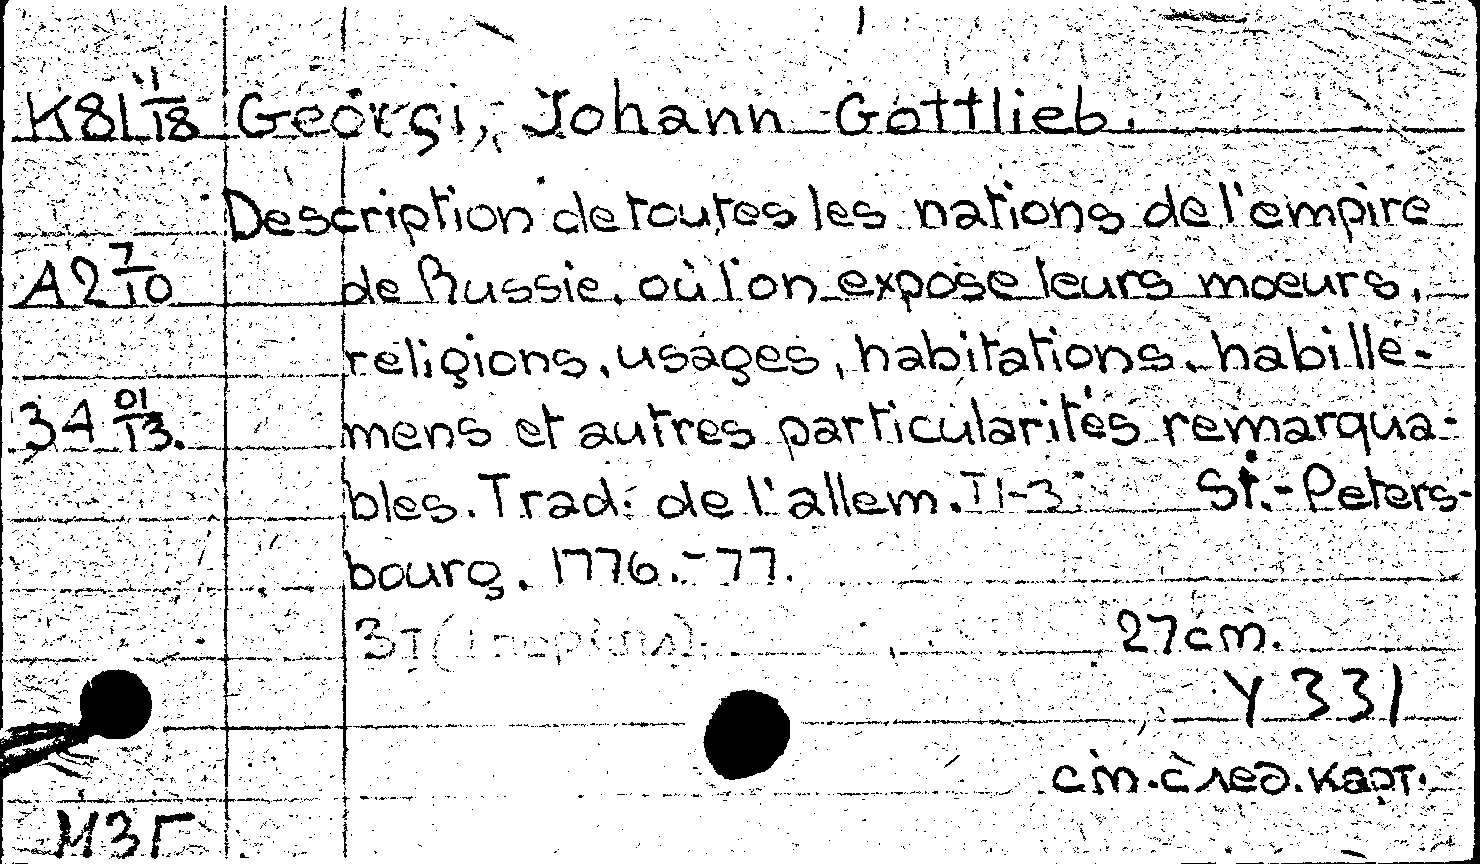 К81 11/18 Georgi, Johann Gottlieb.
Description de toutes les nations de l'empire
А2 7/10 de Russie, où l'on expose leurs mœurs,
religions, usages, habitations, habille-
3А 01/13. mens et autres particularités remarqua-
bles. Trad. de l'allem. T1-3 St.-Peters-
bourg. 1776.-77.
3т (1 перепл)
27cm.
Y 331
см. след. карт.
МЗГ